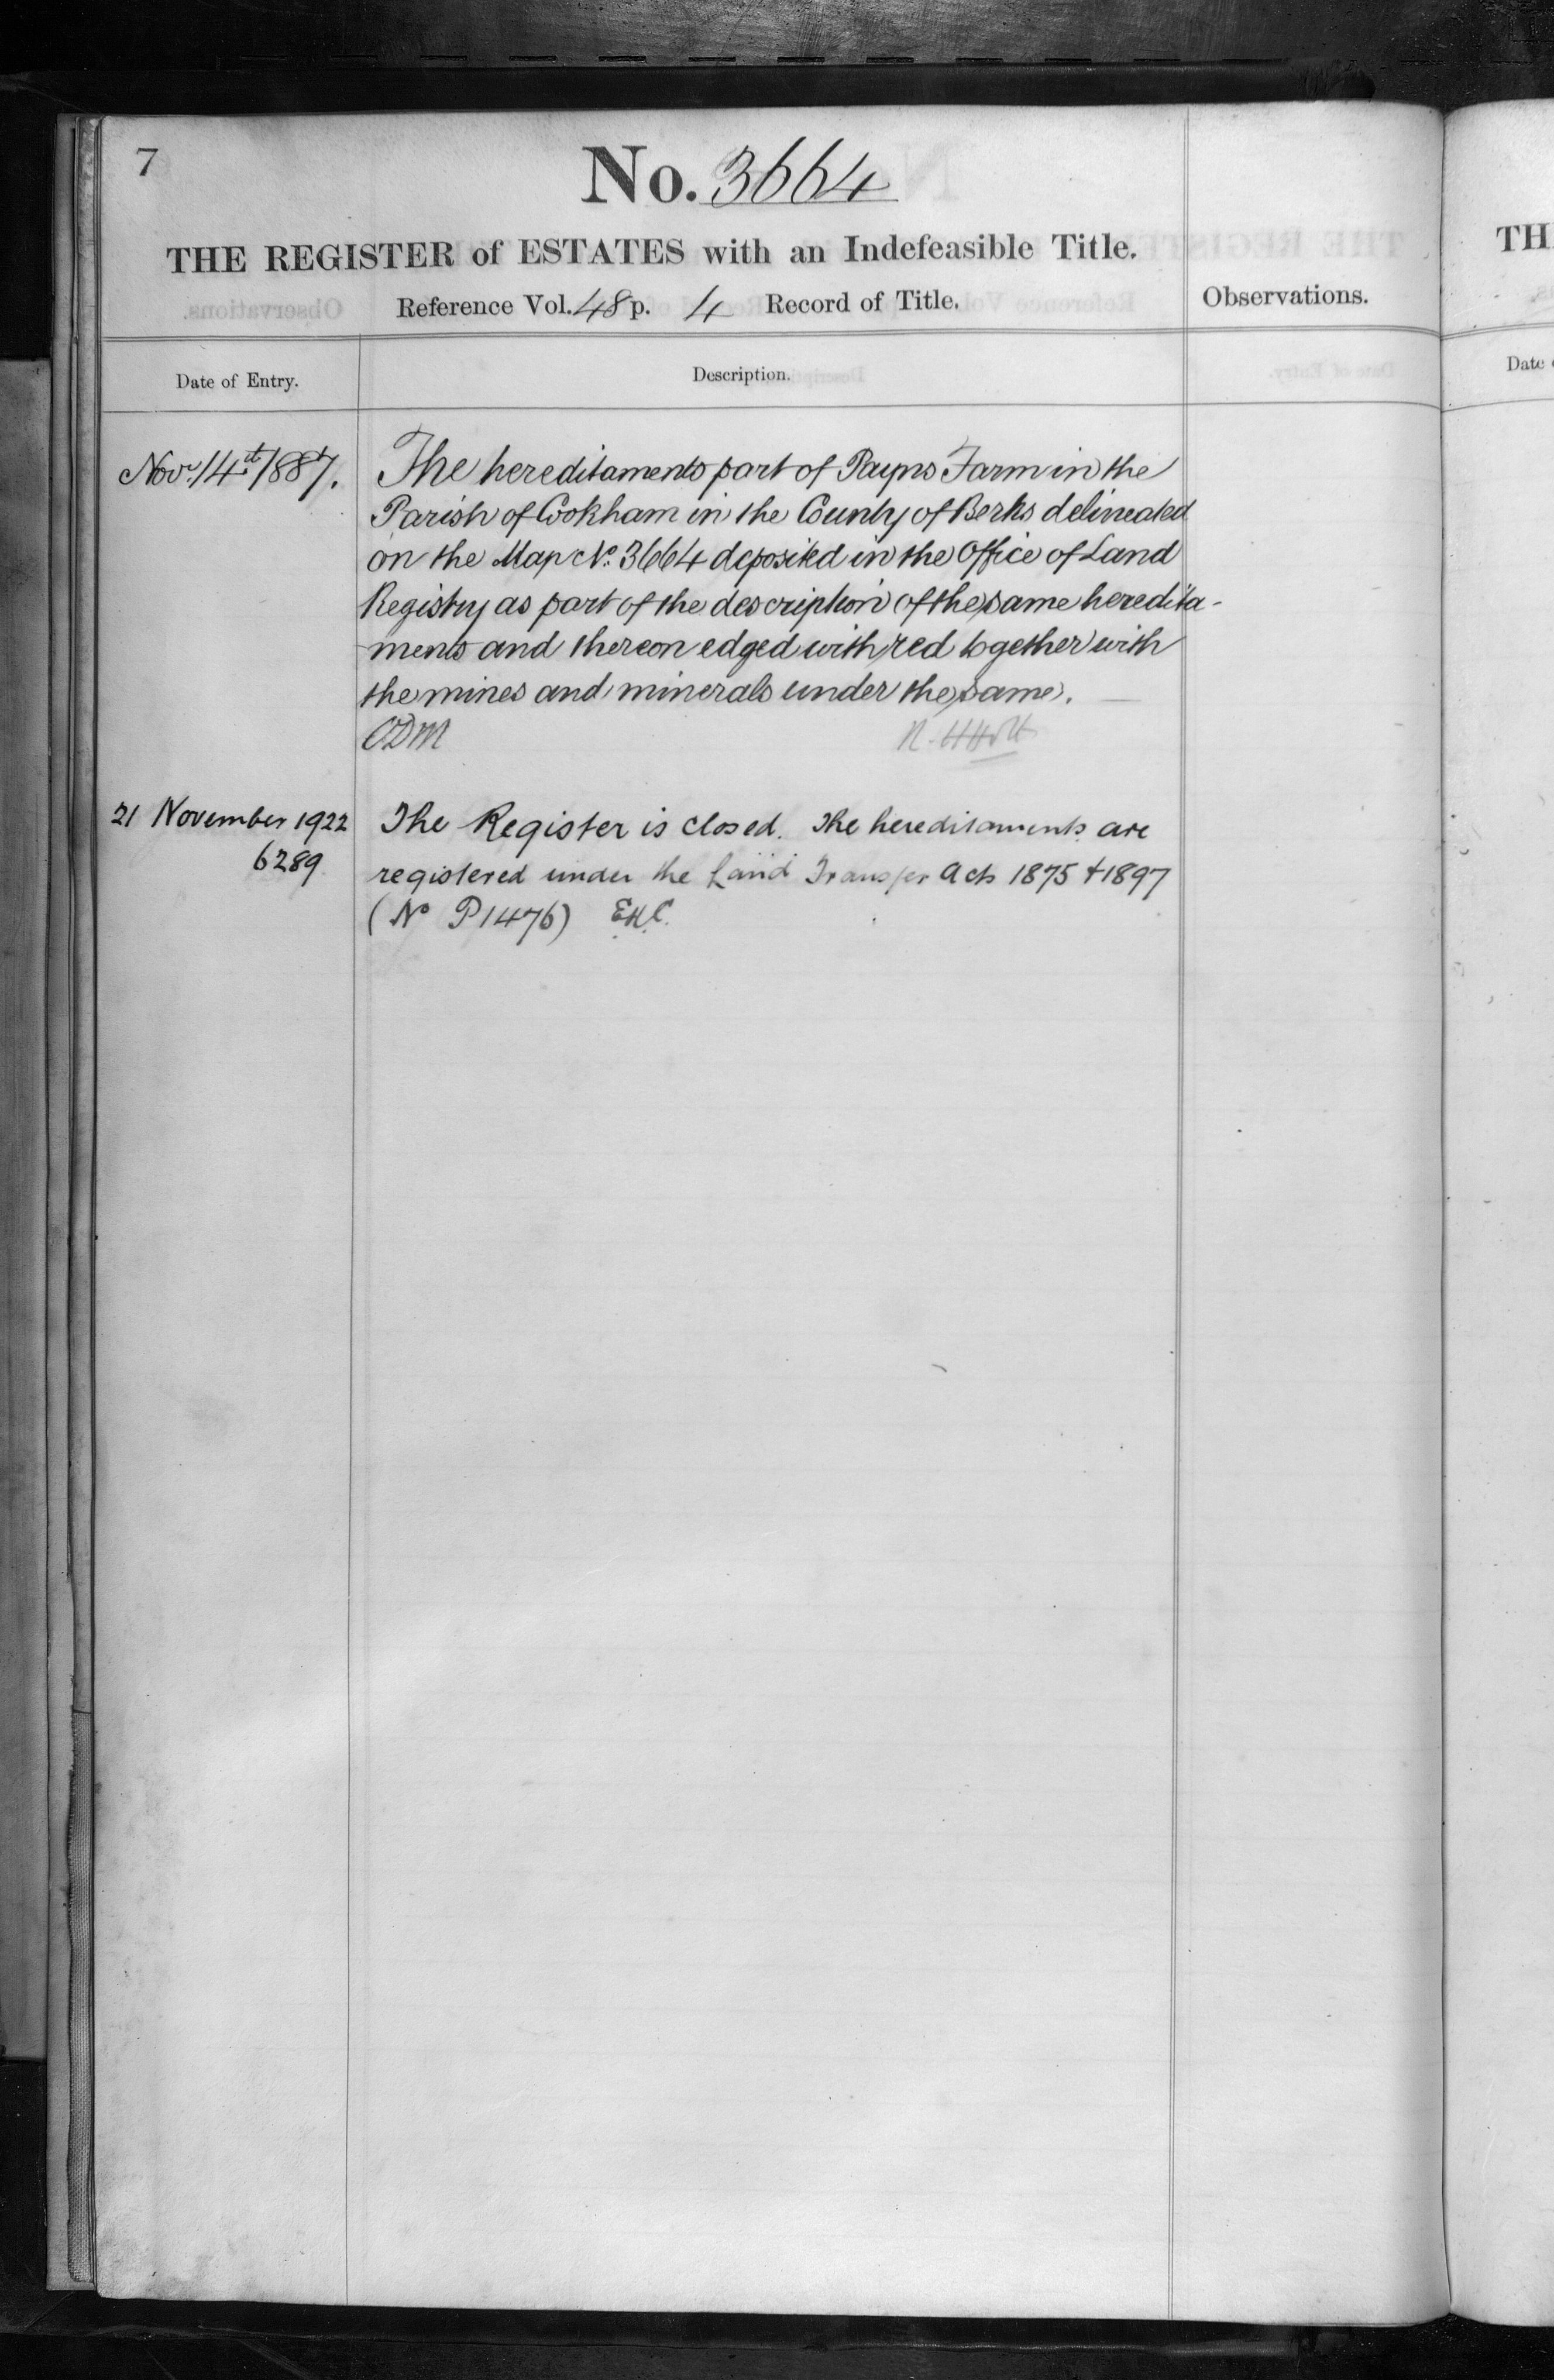 7
No. 3664
THE REGISTER of ESTATES with an Indefeasible Title.
Reference Vol. 48 p. 4 Record of Title.
Observations.
Date of Entry.
Description.
Novr. 14th 1887.
The hereditaments part of Payns Farm in the
Parish of Cookham in the County of Berks delineated
on the Map No. 3664 deposited in the Office of Land
Registry as part of the description of the same heredita-
ments and thereon edged with red together with
the mines and minerals under the same.
CDM
21 November 1922
6289
The Register is closed. The hereditaments are
registered under the Land Transfer Acts 1875 + 1897
(No P1476) EKC.
TH
Date